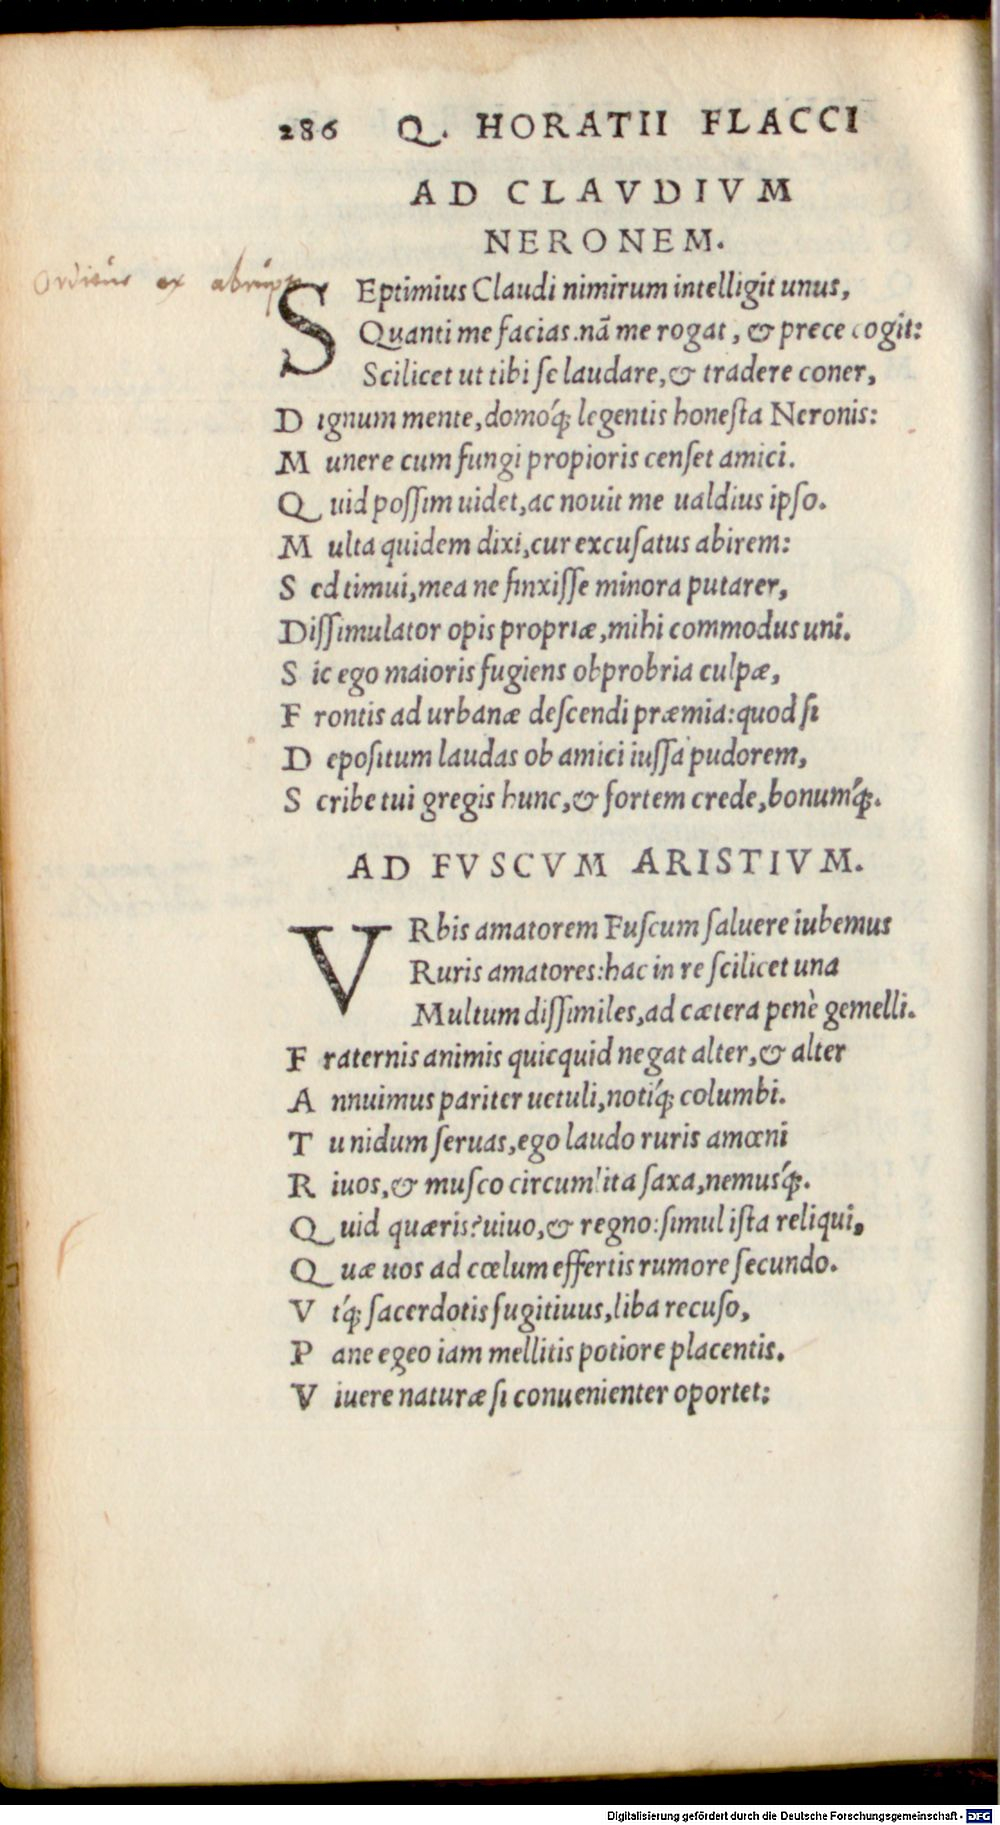 286 Q. HORATII FLACCI
AD CLAVDIVM
NERONEM.
ex
SEptimius Claudi nimirum intelligit unus,
Quanti me facias.nā me rogat, & prece cogit:
Scilicet ut tibi se laudare,& tradere coner,
D ignum mente,domóq; legentis honesta Neronis:
M unere cum fungi propioris censet amici.
Q uid possim uidet,ac nouit me ualdius ipso.
M ulta quidem dixi,cur excusatus abirem:
S ed timui,mea ne finxisse minora putarer,
Dissimulator opis propriæ,mihi commodus uni.
S ic ego maioris fugiens obprobria culpæ,
F rontis ad urbanæ descendi præmia:quod si
D epositum laudas ob amici iussa pudorem,
S cribe tui gregis hunc,& fortem crede,bonumq́;.
AD FVSCVM ARISTIVM.
VRbis amatorem Fuscum saluere iubemus
Ruris amatores:hac in re scilicet una
Multum dissimiles,ad cætera penè gemelli.
F raternis animis quicquid negat alter,& alter
A nnuimus pariter uetuli,notiq́; columbi.
T u nidum seruas,ego laudo ruris amœni
R iuos,& musco circumlita saxa,nemusq́;.
Q uid quæris?uiuo,& regno:simul ista reliqui,
Q uæ uos ad cœlum effertis rumore secundo.
V tq́; sacerdotis fugitiuus,liba recuso,
P ane egeo iam mellitis potiore placentis.
V iuere naturæ si conuenienter oportet:
Digitalisierung gefördert durch die Deutsche Forschungsgemeinschaft - DFG